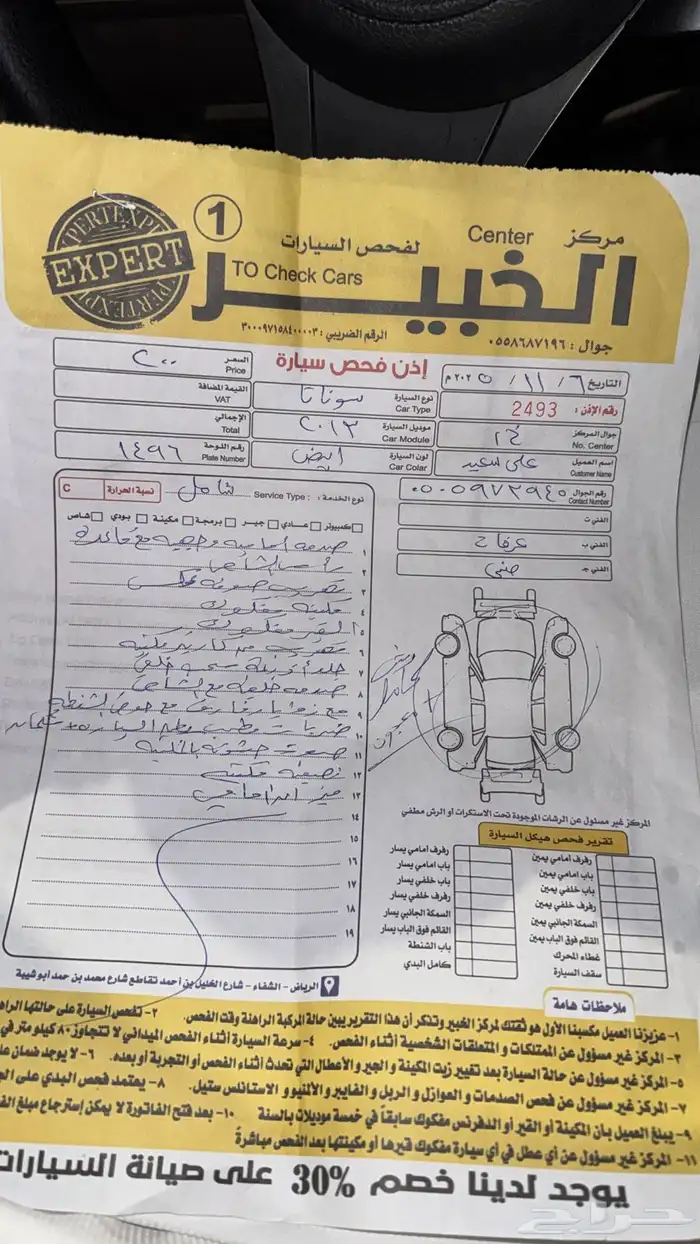 مركز Center
لفحص السيارات
الخبير 1
TO Check Cars
EXPERT
جوال : ٠٥٥٨٦٨٧١٩٦
الرقم الضريبي : ٣٠٠٠٩٧١٥٨٤٠٠٠٠٣
إذن فحص سيارة
التاريخ ٦ / ١١ / ٢٠٢٥ م
رقم الإذن : 2493
جوال المركز No. Center
اسم العميل Customer Name علي سعيد
رقم الجوال Contact Number
الفني ت
الفني ب عرفات
الفني جـ
نوع السيارة Car Type سوناتا
موديل السيارة Car Module ٢٠١٣
لون السيارة Car Colar ابيض
السعر Price ٢٠٠
القيمة المضافة VAT
الإجمالي Total
رقم اللوحة Plate Number ١٤٩٦
نوع الخدمة : Service Type : شامل
نسبة الحرارة C
كمبيوتر عـــادي جيـــر برمجة مكينة بودي شاص
١ صدمه أماميه وجهيه مع قاعدة
٢ رأس الشاص
٣ تهريب صوفة عكس
٤ مكينه مفكوك
٥ القير مفكوك
٦ تهريب من كارتير مكينه
٧
٨ صدمه خلفيه مع الشاص
٩ مع زوايا رفارف مع حوض شنطه
١٠
١١
١٢
١٣
١٤
١٥
١٦
١٧
١٨
١٩
المركز غير مسئول عن الرشات الموجودة تحت الاستكرات أو الرش مطفي
تقرير فحص هيكل السيارة
رفرف أمامي يمين
باب امامي يمين
باب خلفي يمين
رفرف خلفي يمين
السمكة الجانبي يمين
القائم فوق الباب يمين
غطاء المحرك
سقف السيارة
رفرف أمامي يسار
باب امامي يسار
باب خلفي يسار
رفرف خلفي يسار
السمكة الجانبي يسار
القائم فوق الباب يسار
باب الشنطة
كامل البدي
الرياض - الشفاء - شارع الخليل بن أحمد تقاطع شارع محمد بن حمد أبو شيبة
ملاحظات هامة
١- عزيزنا العميل مكسبنا الأول هو ثقتك لمركز الخبير وتذكر أن هذا التقرير يبين حالة المركبة الراهنة وقت الفحص.
٢- تفحص السيارة على حالتها
٣- المركز غير مسؤول عن الممتلكات و المتعلقات الشخصية أثناء الفحص.
٤- سرعة السيارة أثناء الفحص الميداني لا تتجاوز ٨٠ كيلو متر في
٥- المركز غير مسؤول عن حالة السيارة بعد تغيير زيت المكينة و الجير والأعطال التي تحدث أثناء الفحص أو التجربة أو بعده.
٦- لا يوجد ضمان
٧- المركز غير مسؤول عن فحص الصدمات و العوازل و الربل و الفايبر و الالمنيو و الاستانلس ستيل.
٨- يعتمد فحص البدي على
٩- يبلغ العميل بأن المكينة أو القير أو الدفرنس مفكوك سابقاً في خمسة موديلات بالسنة
١٠- بعد فتح الفاتورة لا يمكن إسترجاع مبلغ
١١- المركز غير مسؤول عن أي عطل في أي سيارة مفكوك قيرها أو مكينتها بعد الفحص مباشرةً
يوجد لدينا خصم 30% على صيانة السيارات
حراج